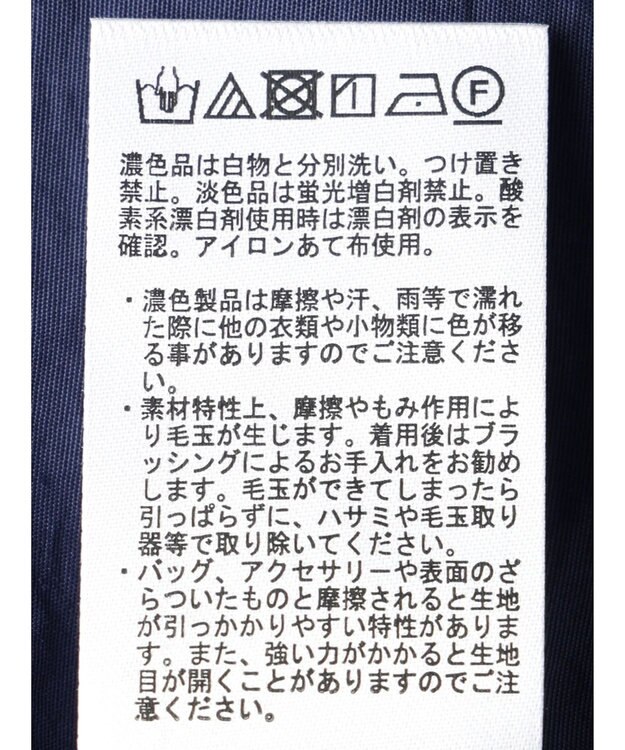 F
濃色品は白物と分別洗い。つけ置き
禁止。淡色品は蛍光増白剤禁止。酸
素系漂白剤使用時は漂白剤の表示を
確認。アイロンあて布使用。
・濃色製品は摩擦や汗、雨等で濡れ
た際に他の衣類や小物類に色が移
る事がありますのでご注意くださ
い。
・素材特性上、摩擦やもみ作用によ
り毛玉が生じます。着用後はブラ
ッシングによるお手入れをお勧め
します。毛玉ができてしまったら
引っぱらずに、ハサミや毛玉取り
器等で取り除いてください。
・バッグ、アクセサリーや表面のざ
らついたものと摩擦されると生地
が引っかかりやすい特性がありま
す。また、強い力がかかると生地
目が開くことがありますのでご注
意ください。